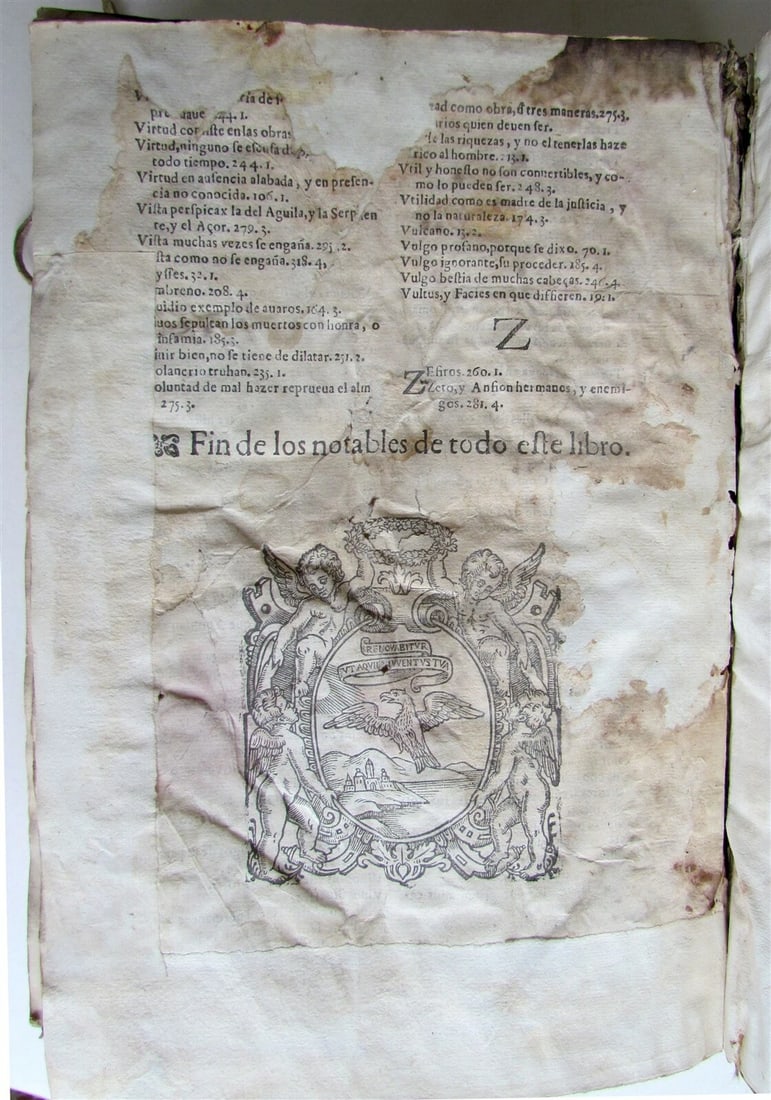 244.1.
Virtud en las obras
Virtud, ninguno se
todo tiempo. 244.1.
Virtud en ausencia alabada, y en presen-
cia no conocida. 106.1.
Vista perspicax la del Aguila, y la Serp en
te, y el Açor. 279.3.
Vista muchas vezes se engaña. 291.2.
sta como no se engaña. 318.4,
ysses. 32.1.
mbreno. 208.4.
uidio exemplo de auaros. 164.3.
uos sepulcan los muertos con honra, o
infamia. 185.3.
inir bien, no se tiene de dilatar. 251.2.
olanerio truhan. 235.1.
oluntad de mal hazer reprueua el alm
275.3.
ad como obra, d tres maneras. 275.3.
rios quien deuen ser.
las riquezas, y no el tenerlas haze
rico al hombre. 13.1.
Vtil y honesto no son conuertibles, y co-
mo lo pueden ser. 248.3.
Vtilidad como es madre de la justicia, y
no la naturaleza. 174.3.
Vulcano. 13.2.
Vulgo profano, porque se dixo. 70.1.
Vulgo ignorante, su proceder. 185.4.
Vulgo bestia de muchas cabeças. 246.4.
Vultus, y Facies en que difieren. 191.1.
Z
ZEfiros. 260.1.
Zeto, y Anfion hermanos, y enemi-
gos. 281.4.
Fin de los notables de todo este libro.
RENOVABITVR
VT AQVILE IVVENTVS TVA